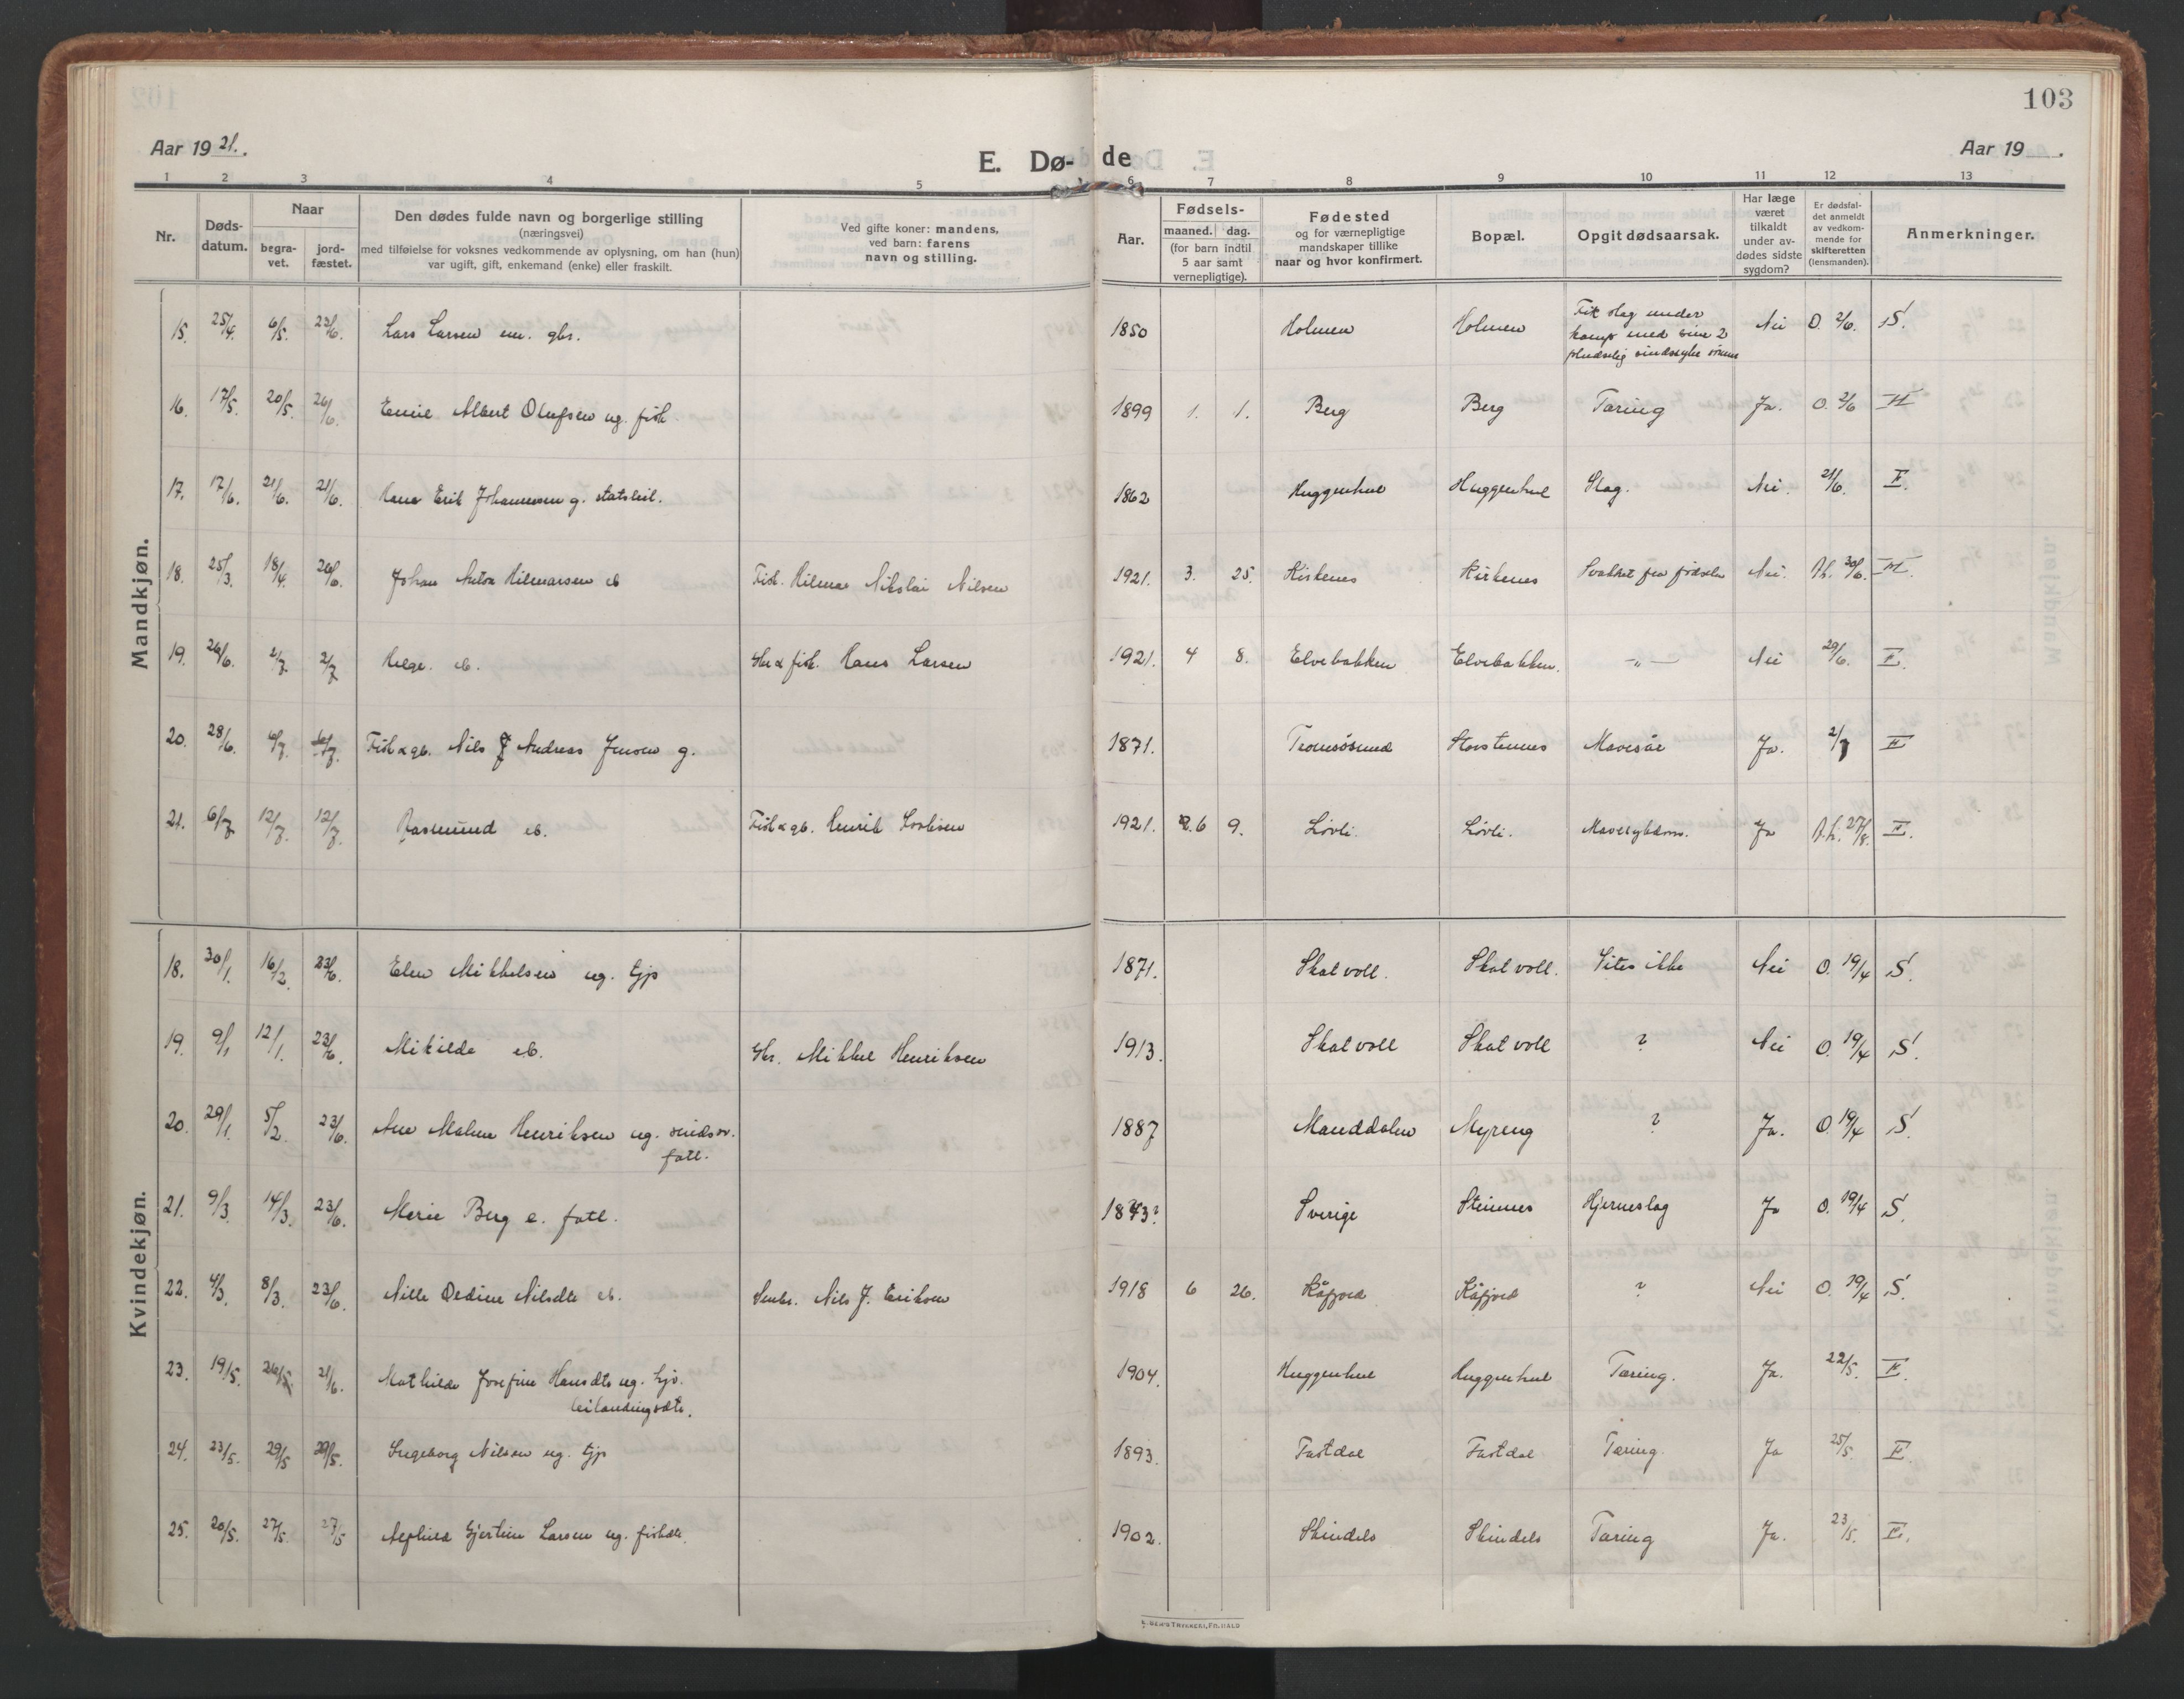 103
Aar 19 21.
E. Dø-
de
Aar 19
1 2 3 4 5 6 7 8 9 10 11 12 13
Nr.
Døds-
datum.
Naar
begra-
vet.
jord-
fæstet.
Den dødes fulde navn og borgerlige stilling
(næringsvei)
med tilføielse for voksnes vedkommende av oplysning, om han (hun)
var ugift, gift, enkemand (enke) eller fraskilt.
Ved gifte koner: mandens,
ved barn: farens
navn og stilling.
Aar.
Fødsels-
maaned. dag.
(for barn indtil
5 aar samt
vernepligtige).
Fødested
og for værnepligtige
mandskaper tillike
naar og hvor konfirmert.
Bopæl.
Opgit dødsaarsak.
Har læge
været
tilkaldt
under av-
dødes sidste
sygdom?
Er dødsfal-
det anmeldt
av vedkom-
mende for
skifteretten
(lensmanden).
Anmerkninger.
Mandkjøn.
15. 25/4. 6/5. 23/6. Lars Larsen em. gbr. 1850 Holmen Holmen Fik slag under
kamp med sine 2
pludselig sindssyke sønner Nei O. 2/6. S.
16. 17/5. 20/5. 26/6. Emil Albert Olufsen ug. fisk. 1899 1. 1. Berg Berg Tæring Ja. O. 2/6 H
17. 17/6. 21/6. 21/6. Hans Erik Johannesen g. 1862 Huggenhul Huggenhul Slag. Nei. 21/6. F.
18. 25/3. 18/4. 26/6. Johan Anton Hilmarsen eb Fisk. Hilmar Nikolai Nilsen 1921. 3. 25. Kirkenes Kirkenes Svakhet fra fødselen Nei. 30/6. H.
19. 26/6. 2/7. 2/7 Helge. eb. Gbr & fisk. Hans Larsen 1921. 4 8. Elvebakken Elvebakken. -"- Nei 29/6. F.
20. 28/6. 6/7. 6/7. Fisk & gb. Nils J Andreas Jensen g. 1871. Tromsøsund Storstennes Mavesår Ja. 2/7 F
21. 6/7 12/7. 12/7. Rasmund eb. Fisk & gb. Henrik 1921. 6 9. Løvli. Løvli. Mavesykdom. Ja 27/8. F.
Kvindekjøn.
18. 30/1. 16/2. 23/6. Elen Mikkelsen ug. tjp 1871. Skatvoll. Skatvoll. Vites ikke Nei O. 19/4 S.
19. 9/1 12/1. 23/6. Mikilde eb. Gbr. Mikkel Henriksen 1913. Skatvoll Skatvoll ? Nei O. 19/4 S.
20. 29/1. 5/2. 23/6. Ane Malene Henriksen ug. sindssv.
fatl. 1887 Manddalen Myreng ? Ja. O. 19/4 S.
21. 9/3. 14/3. 23/6. Marie Berg e. fatl. 1843? Sverige Steinnes Hjerneslag Ja O. 19/4 S.
22. 4/3. 8/3. 23/6. Nille Oedine Nilsdtr eb. Nils J. Eriksen 1918 6 26. Kåfjord Kåfjord ? Nei O. 19/4 S.
23. 19/5. 26/5 21/6. Mathilde Josefine Hansdtr ug. tjp.
leilændingsdtr. 1904. Huggenhul Huggenhul Tæring. Ja. 22/5. F.
24. 23/5. 29/5 29/5. Ingeborg Nilsen ug. tjp 1893. Fastdal Fastdal Tæring. Ja 25/5. F.
25. 20/5. 27/5. 27/5 Alfhild Gjertine Larsen ug. fiskdtr. 1902. Skindels Skindels Tæring Ja. 23/5. F.